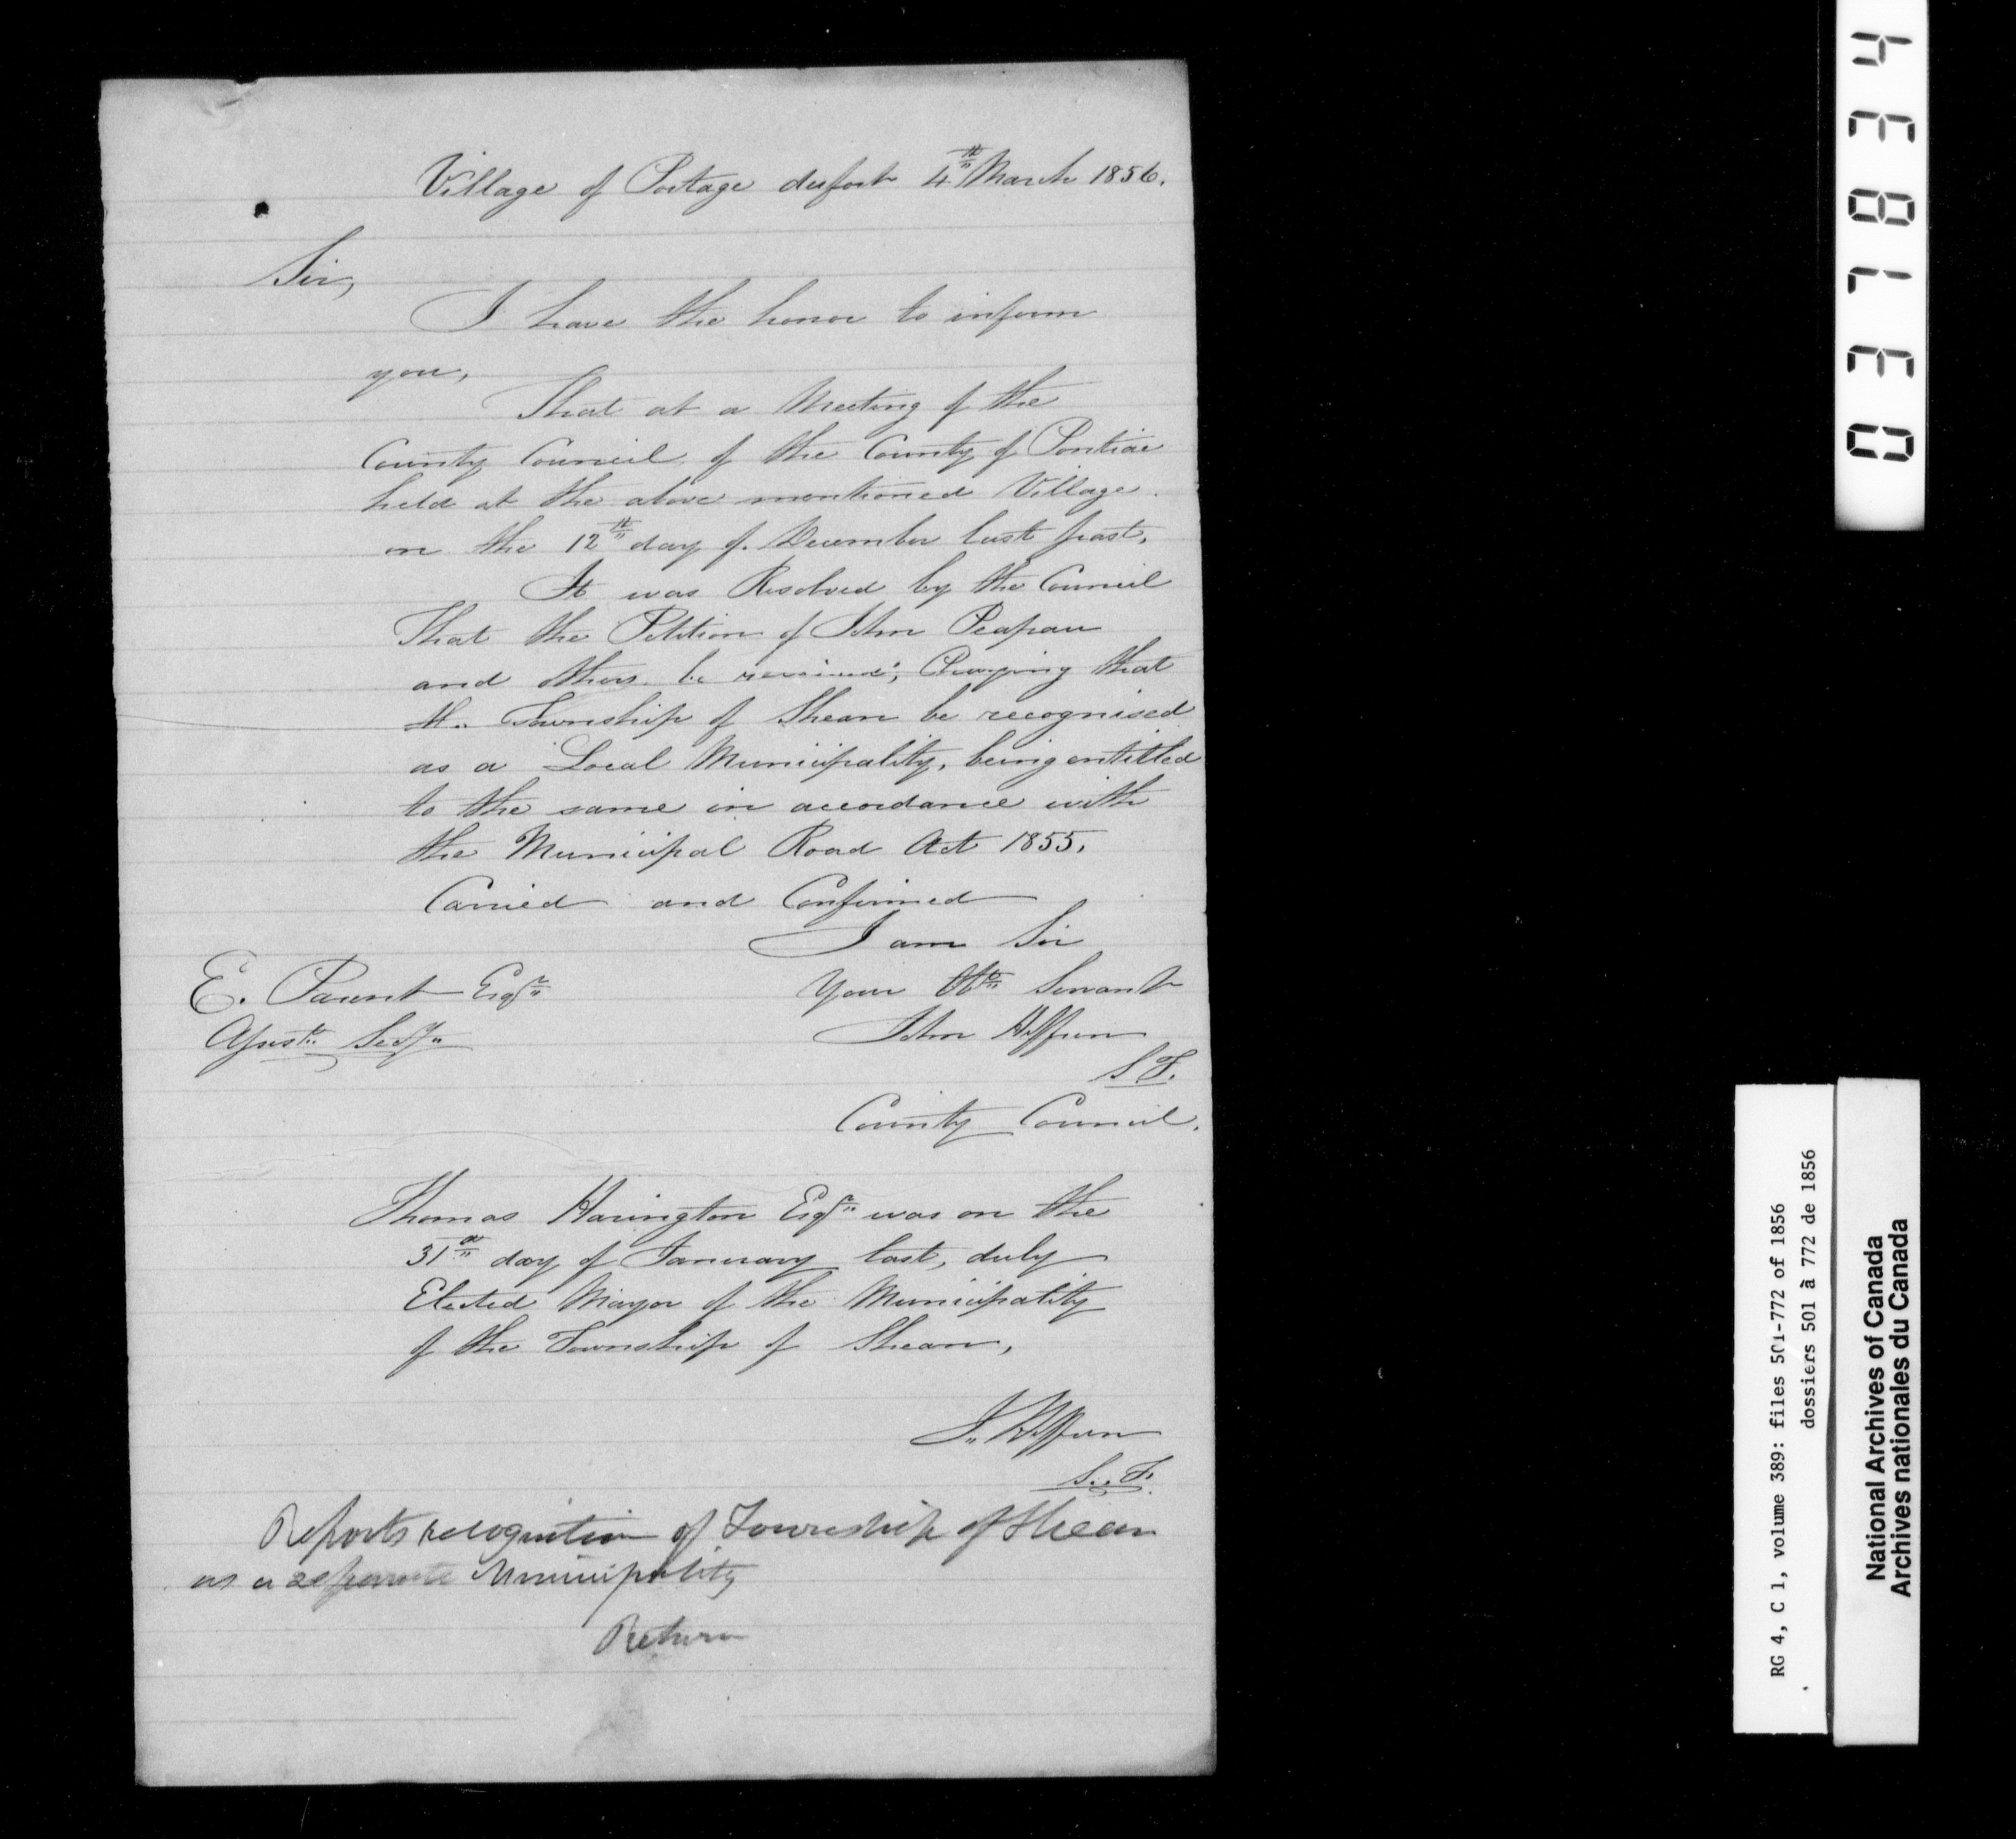 Village of Portage dufort 4th March 1856.
Sir,
I have the honor to inform
you,
That at a Meeting of the
County Council of the County of Pontiac
held at the above mentioned Village
on the 12th day of December last past,
It was Resolved by the Council
That the Petition of John
and others be received; Praying that
the Township of Shean be recognised
as a Local Municipality, being entitled
to the same in accordance with
the Municipal Road Act 1855.
Carried and Confirmed
I am Sir
Your Obt Servant
John
S T.
County Council.
E. Parent Esqr
Assist Secy
Thomas Harington Esqr was on the
31st day of January last, duly
Elected Mayor of the Municipality
of the Township of Shean,
J.
S. T.
Reports recognition of Township of Shean
as a separate Municipality
Return
037834
RG 4, C 1, volume 389: files 501-772 of 1856
dossiers 501 à 772 de 1856
National Archives of Canada
Archives nationales du Canada